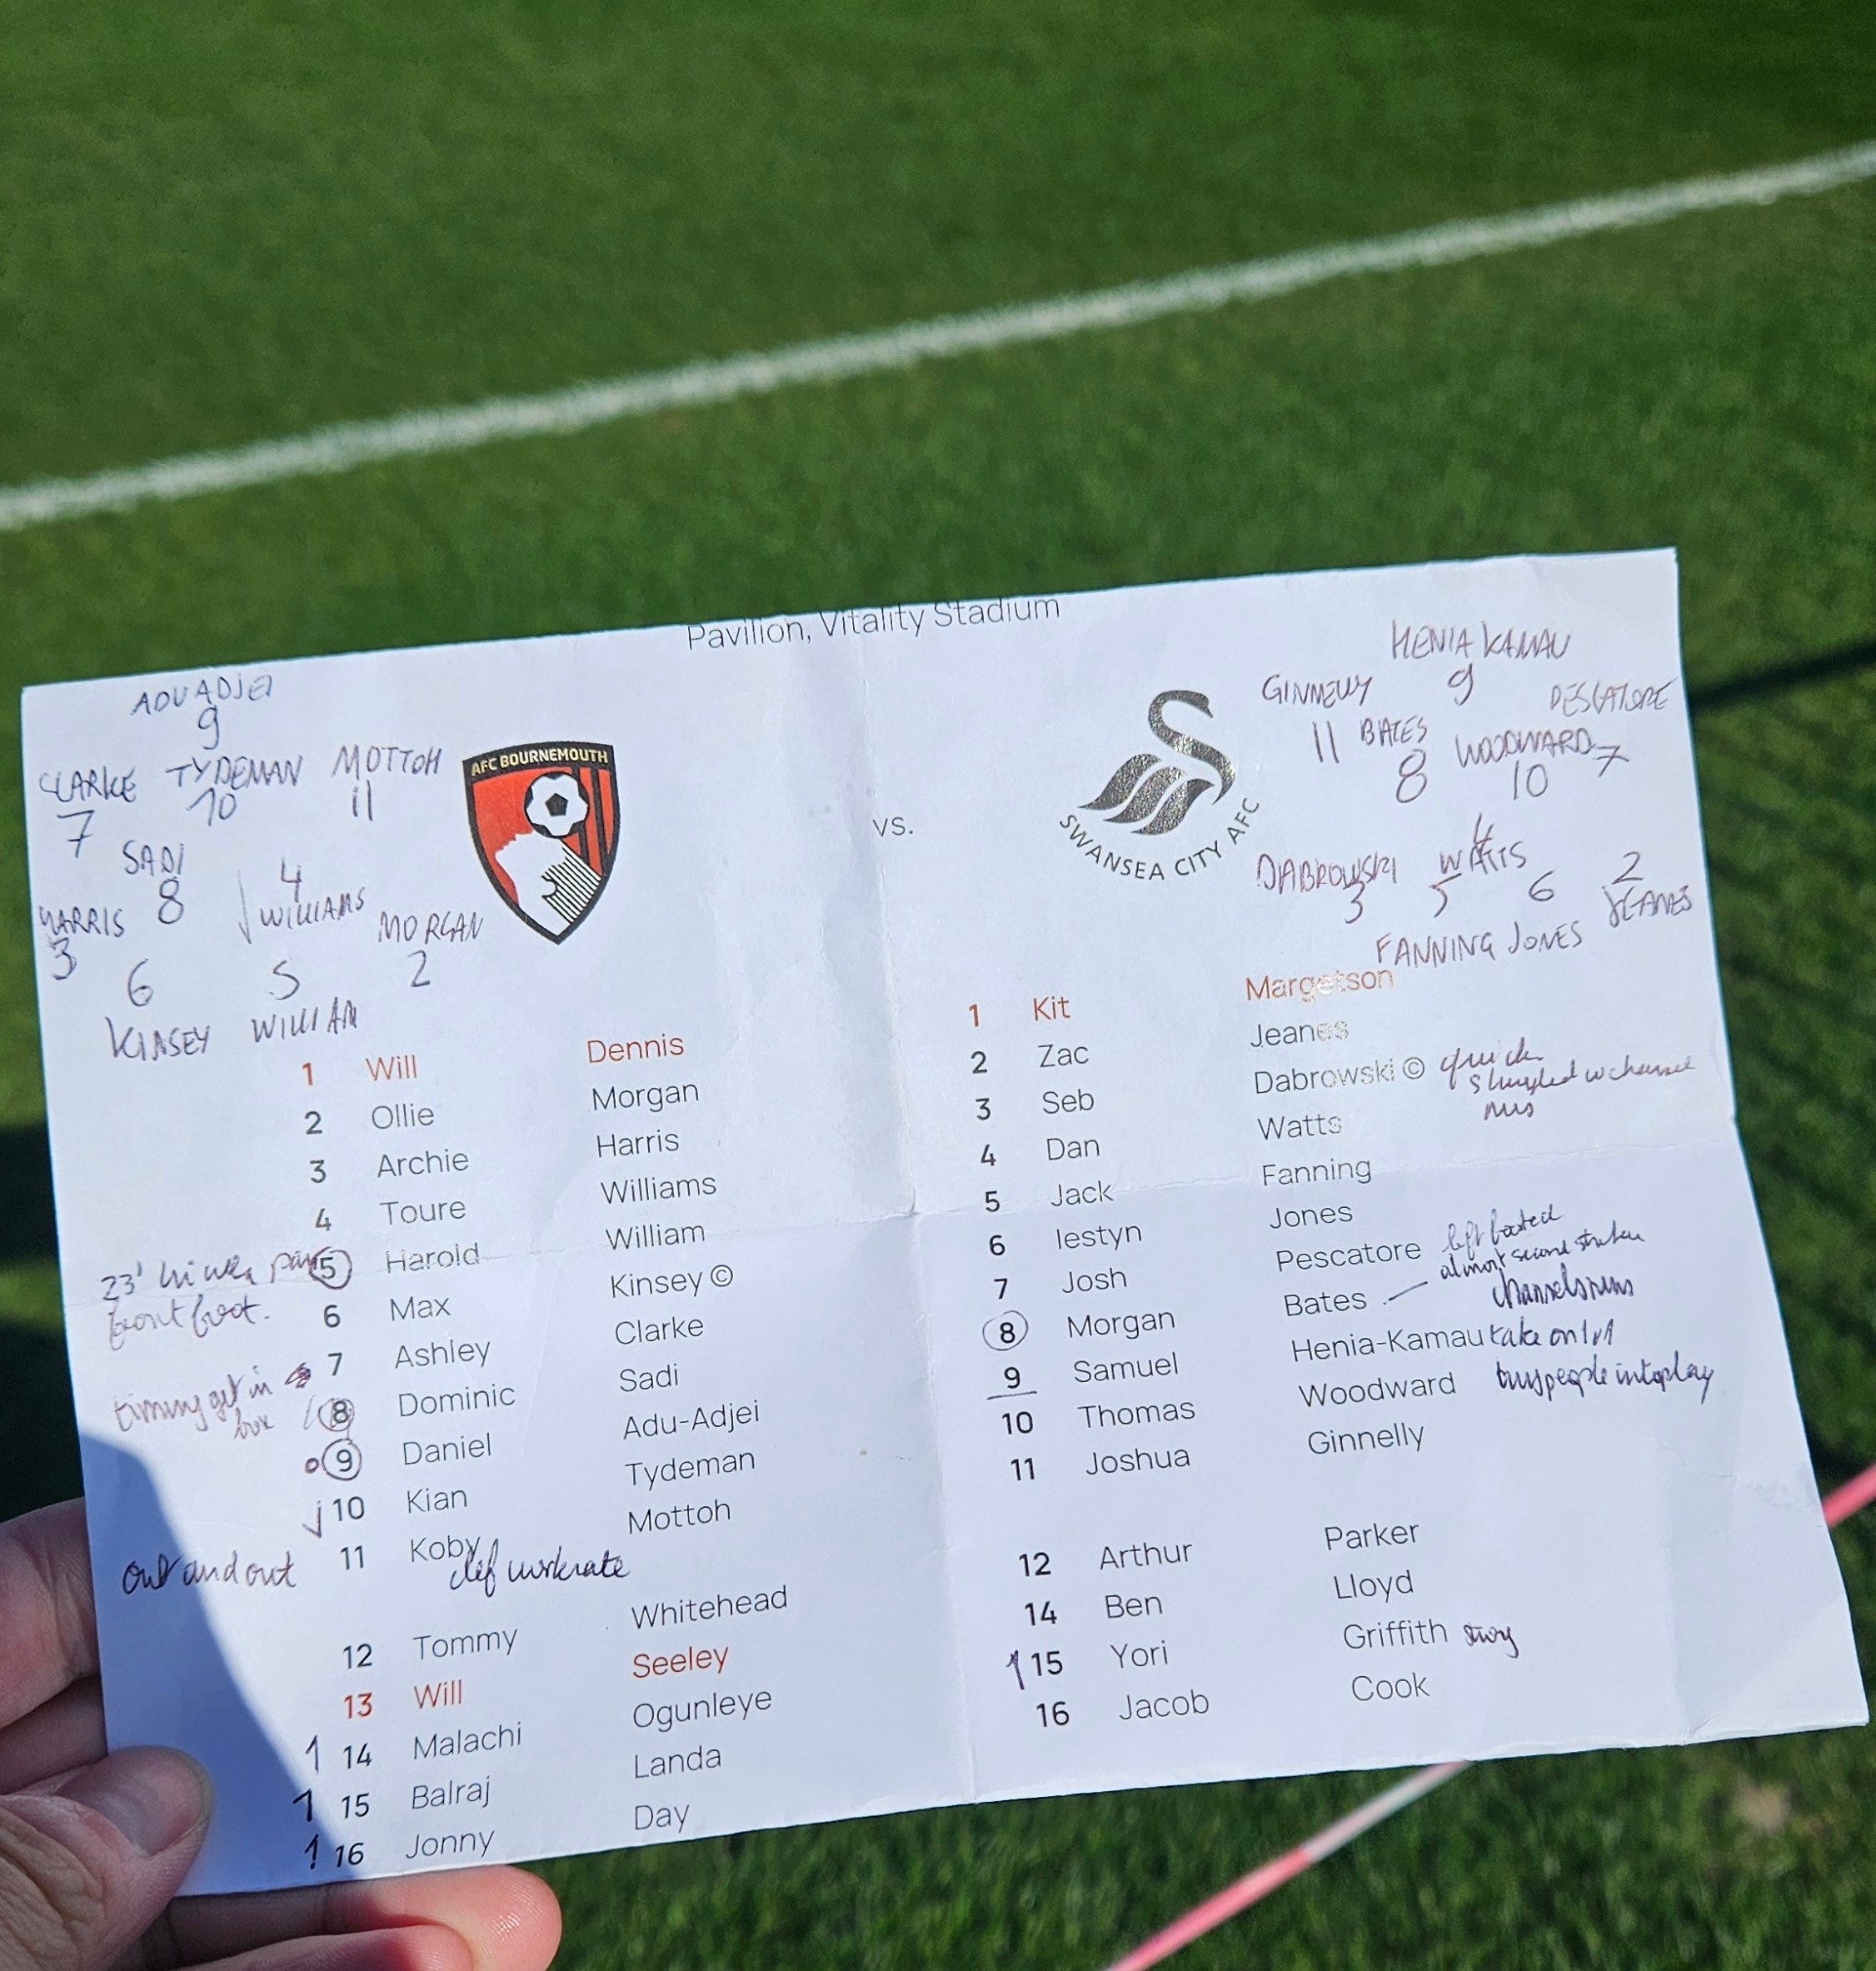 Pavilion, Vitality Stadium
ADU ADJEI
9
CLARKE TYDEMAN MOTTOH
7 10 11
SADI
8
4
WILLIAMS
HARRIS
3
MORGAN
2
6 5
KINSEY WILLIAM
AFC BOURNEMOUTH
vs.
SWANSEA CITY AFC
HENIA KAMAU
9
GINNELLY
11
BATES
8
WOODWARD
10
PESCATORE
7
DABROWSKI
3
4
WATTS
5 6
2
JEANES
FANNING JONES
1 Will Dennis
2 Ollie Morgan
3 Archie Harris
4 Toure Williams
23' 5 Harold William
front foot.
6 Max Kinsey ©
7 Ashley Clarke
timing get in
box
8 Dominic Sadi
9 Daniel Adu-Adjei
10 Kian Tydeman
out and out 11 Koby Mottoh
def workrate
12 Tommy Whitehead
13 Will Seeley
1 14 Malachi Ogunleye
1 15 Balraj Landa
1 16 Jonny Day
1 Kit Margetson
2 Zac Jeanes
3 Seb Dabrowski © quick
struggled w channel
runs
4 Dan Watts
5 Jack Fanning
6 Iestyn Jones
7 Josh Pescatore left footed
8 Morgan Bates almost second striker
channels runs
9 Samuel Henia-Kamau take on 1v1
10 Thomas Woodward people into play
11 Joshua Ginnelly
12 Arthur Parker
14 Ben Lloyd
1 15 Yori Griffith
16 Jacob Cook